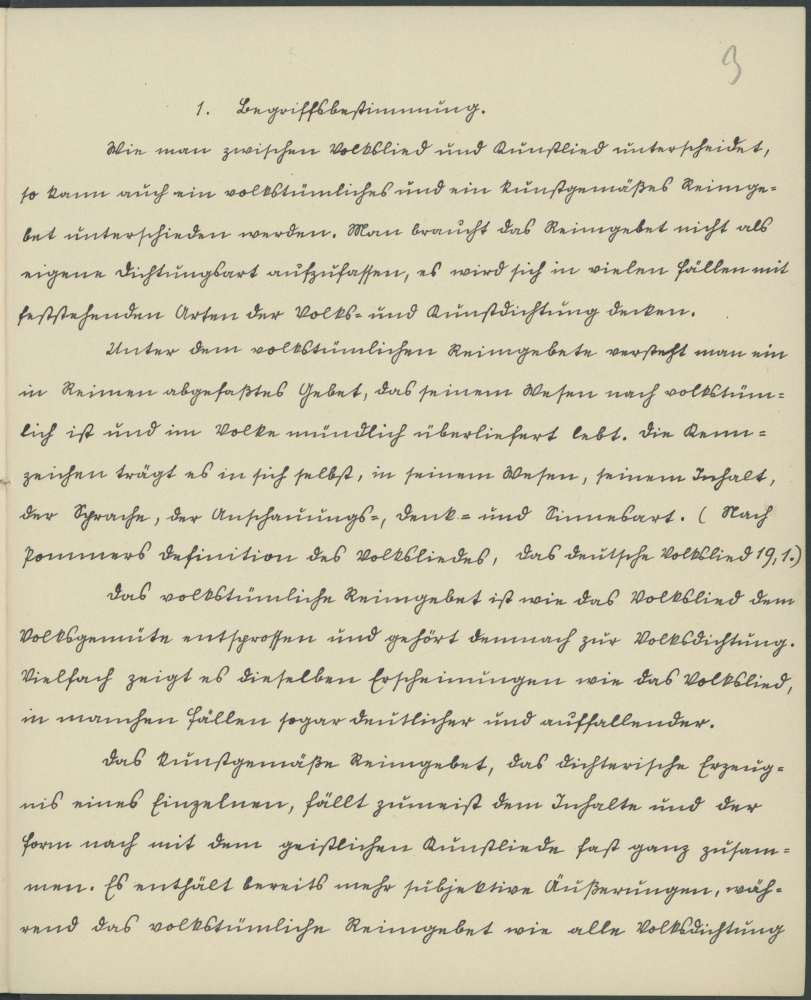 3
1. Begriffsbestimmung.
Wie man zwischen Volkslied und Kunstlied unterscheidet,
so kann auch ein volkstümliches und ein kunstgemäßes Reimge=
bet unterschieden werden. Man braucht das Reimgebet nicht als
eigene Dichtungsart aufzufassen, es wird sich in vielen Fällen mit
feststehenden Arten der Volks= und Kunstdichtung decken.
Unter dem volkstümlichen Reimgebete versteht man ein
in Reimen abgefaßtes Gebet, das seinem Wesen nach volkstüm=
lich ist und im Volke mündlich überliefert lebt. Die Kenn=
zeichen trägt es in sich selbst, in seinem Wesen, seinem Inhalt,
der Sprache, der Anschauungs=, Denk= und Sinnesart. (Nach
Pommers Definition des Volksliedes, Das deutsche Volkslied 19,1.)
Das volkstümliche Reimgebet ist wie das Volkslied dem
Volksgemüte entsprossen und gehört demnach zur Volksdichtung.
Vielfach zeigt es dieselben Erscheinungen wie das Volkslied,
in manchen Fällen sogar deutlicher und auffallender.
Das kunstgemäße Reimgebet, das dichterische Erzeug=
nis eines Einzelnen, fällt zumeist dem Inhalte und der
Form nach mit dem geistlichen Kunstliede fast ganz zusam=
men. Es enthält bereits mehr subjektive Äußerungen, wäh=
rend das volkstümliche Reimgebet wie alle Volksdichtung